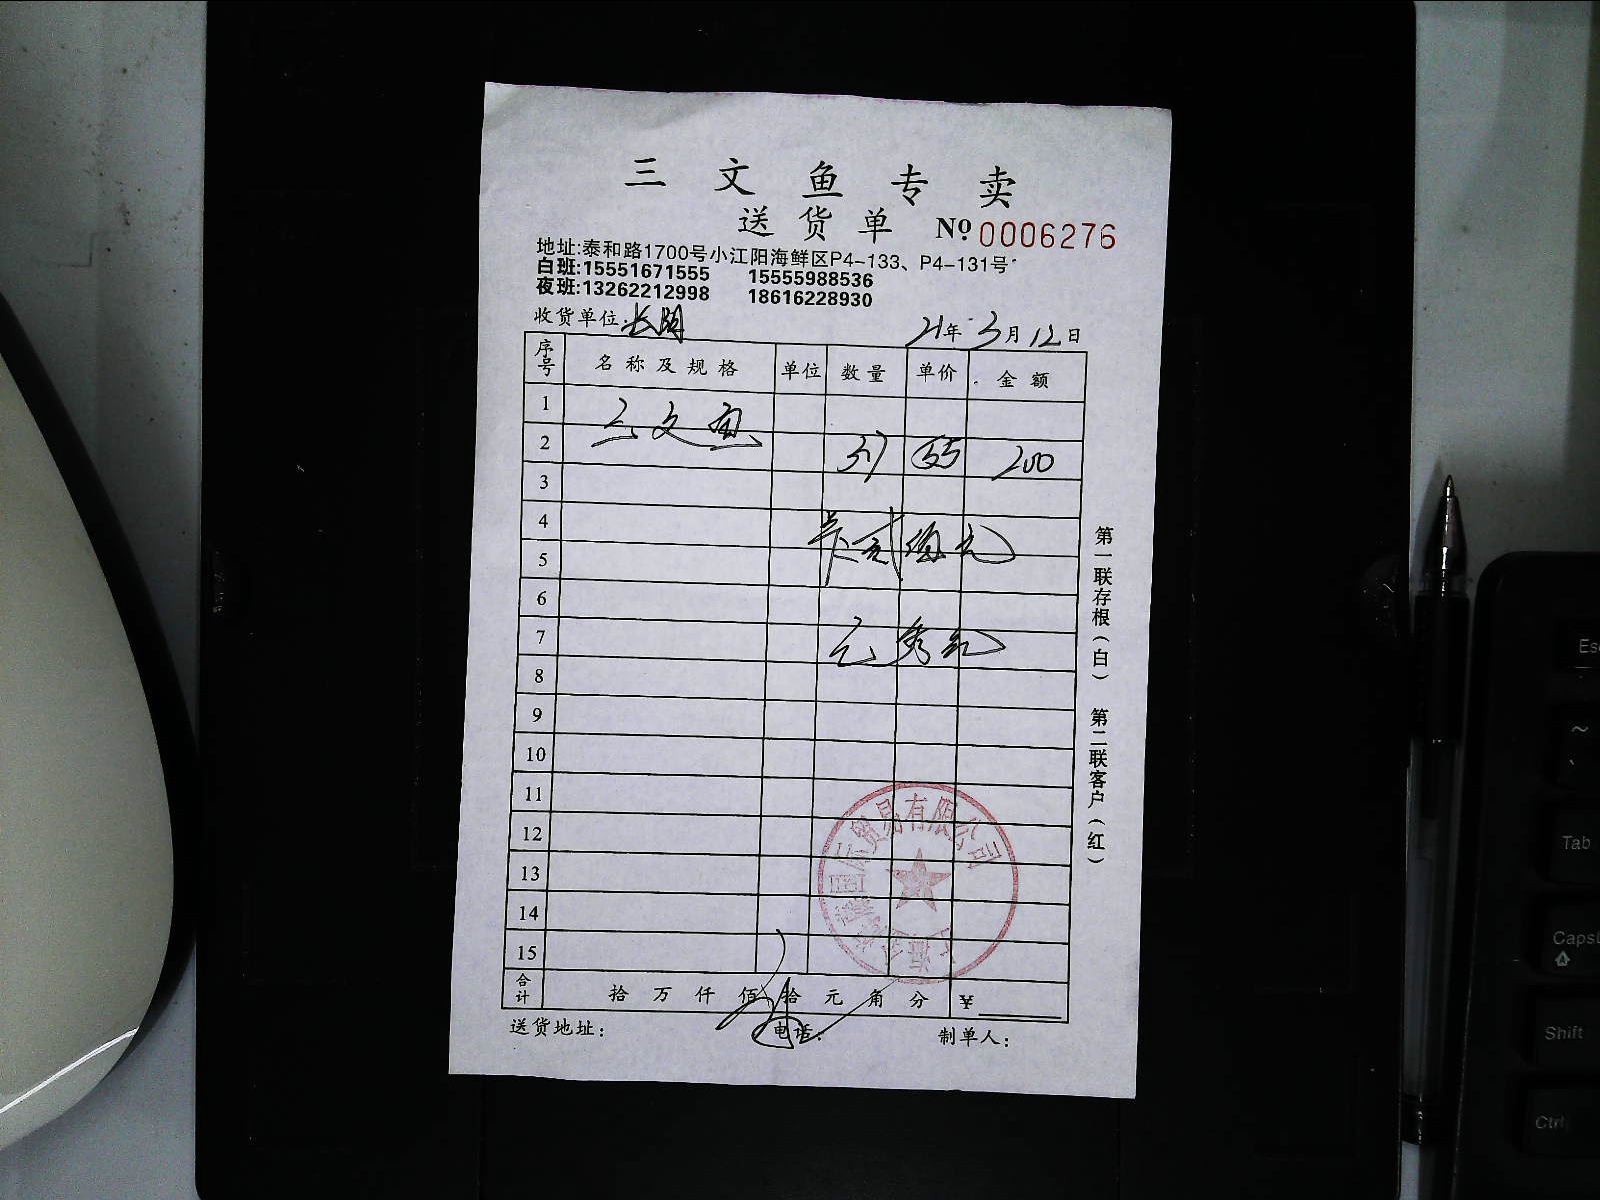 三文鱼专卖
送货单 Nº 0006276
地址:泰和路1700号小江阳海鲜区P4-133、P4-131号
白班:15551671555 15555988536
夜班:13262212998 18616228930
收货单位: 21年3月12日
序号 名称及规格 单位 数量 单价 金额
1 三文鱼
2 55 200
3
4
5
6
7
8
9
10
11
12
13
14
15
合计 拾万仟佰拾元角分 ¥
送货地址: 电话: 制单人:
第一联存根(白) 第二联客户(红)
贸易有限公司
Esc
~
Tab
Caps
Shift
Ctrl